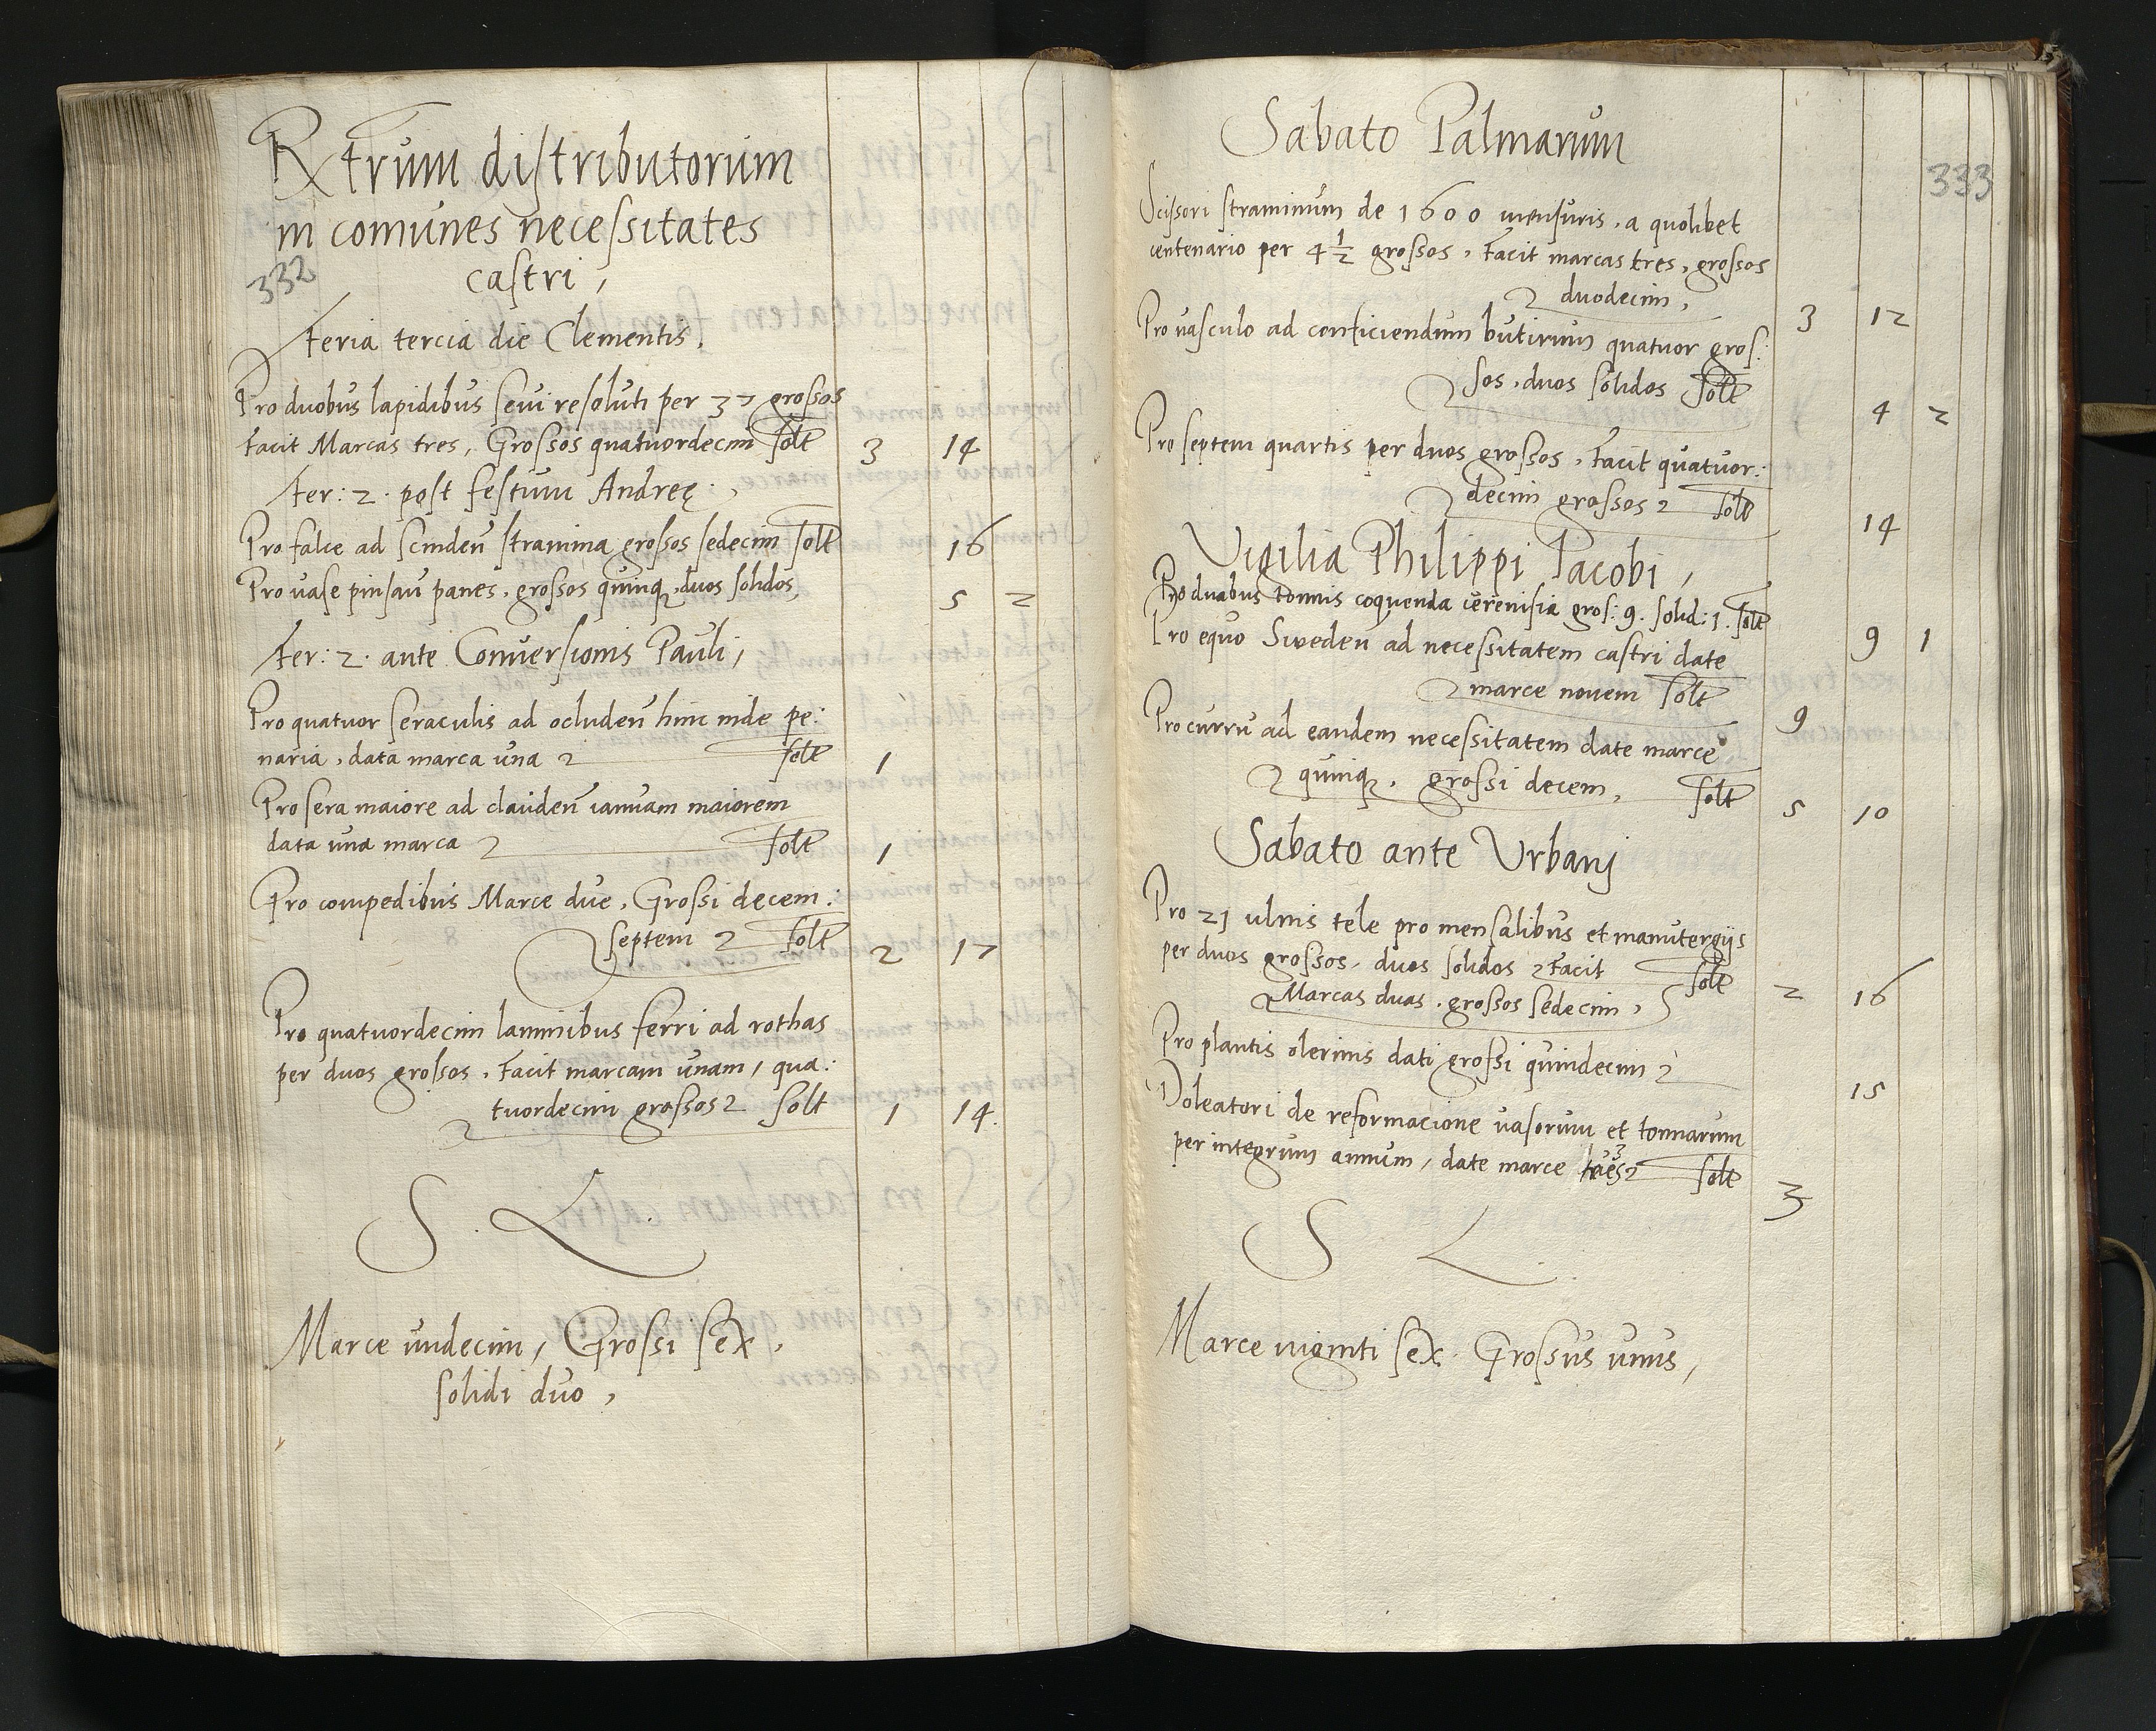 Rxtrum distributorum
in comunes necessitates
castri,
332
feria tercia die Clementis.
Pro duobus lapidibus sevi resoluti per 37 grossos
facit Marcas tres, Grossos quatuordecim solt 3 14
fer: 2. post festum Andreę.
Pro falce ad scinden̄ stramina grossos sedecim solt 16
Pro vase pinsan̄ panes. grossos quinq, duos solidos 5 2
fer: 2. ante Conversionis Pauli,
Pro quatuor seraculis ad ocluden̄ hinc inde pe:
naria, data marca una solt 1
Pro sera maiore ad clauden̄ ianuam maiorem
data una marca solt 1
Pro compedibus Marce due, Grossi decem:
septem solt 2 17
Pro quatuordecim laminibus ferri ad rothas
per duos grossos. facit marcam unam, qua:
tuordecim grossos solt 1 14.
S. L.
Marce undecim, Grossi sex,
solidi duo,
Sabato Palmarum
333
Scissori straminum de 1600 mensuris, a quolibet
centenario per 4 1/2 grossos, facit marcas tres, grossos
duodecim, 3 12
Pro vasculo ad conficiendum butirum quatuor gros:
sos, duos solidos solt 4 2
Pro septem quartis per duos grossos, facit quatuor:
decim grossos solt 14
Vigilia Philippi Jacobi,
Pro duabus tonnis coquenda cerenisia gros: 9. solid: 1. solt 9 1
Pro equo Sweden ad necessitatem castri date
marce novem solt 9
Pro curru ad eandem necessitatem date marce
quinq, grossi decem, solt 5 10
Sabato ante Urbanj
Pro 21 ulnis tele pro mensalibus et manutergijs
per duos grossos, duos solidos facit solt
Marcas duas, grossos sedecim, 2 16
Pro plantis olerinis dati grossi quindecim 15
Doleatori de reformacione vasorum et tonnarum
per integrum annum, date marce tres solt 3
S L.
Marce viginti sex. Grossus unus,